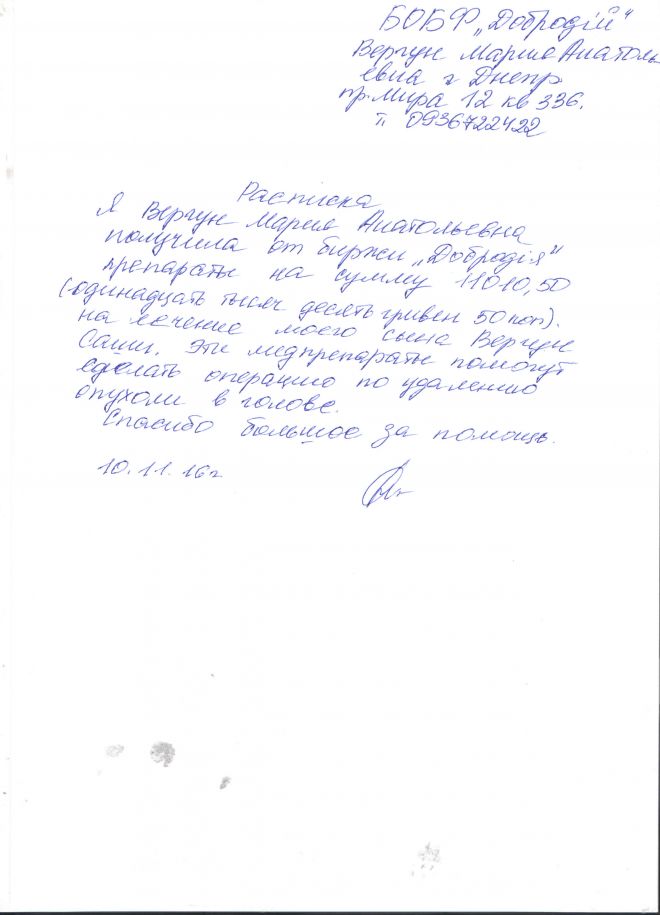 БОБФ „Добродій"
Вергун Мария Анатоль
евна г Днепр
пр. Мира 12 кв 336.
т. 0936722422
Расписка
Я Вергун Мария Анатольевна
получила от биржи „Добродія"
препараты на сумму 11010,50
(одинадцать тысяч десять гривен 50 коп).
на лечение моего сына Вергун
Саши. Эти медпрепараты помогут
сделать операцию по удалению
опухоли в голове.
Спасибо большое за помощь.
10.11.16г